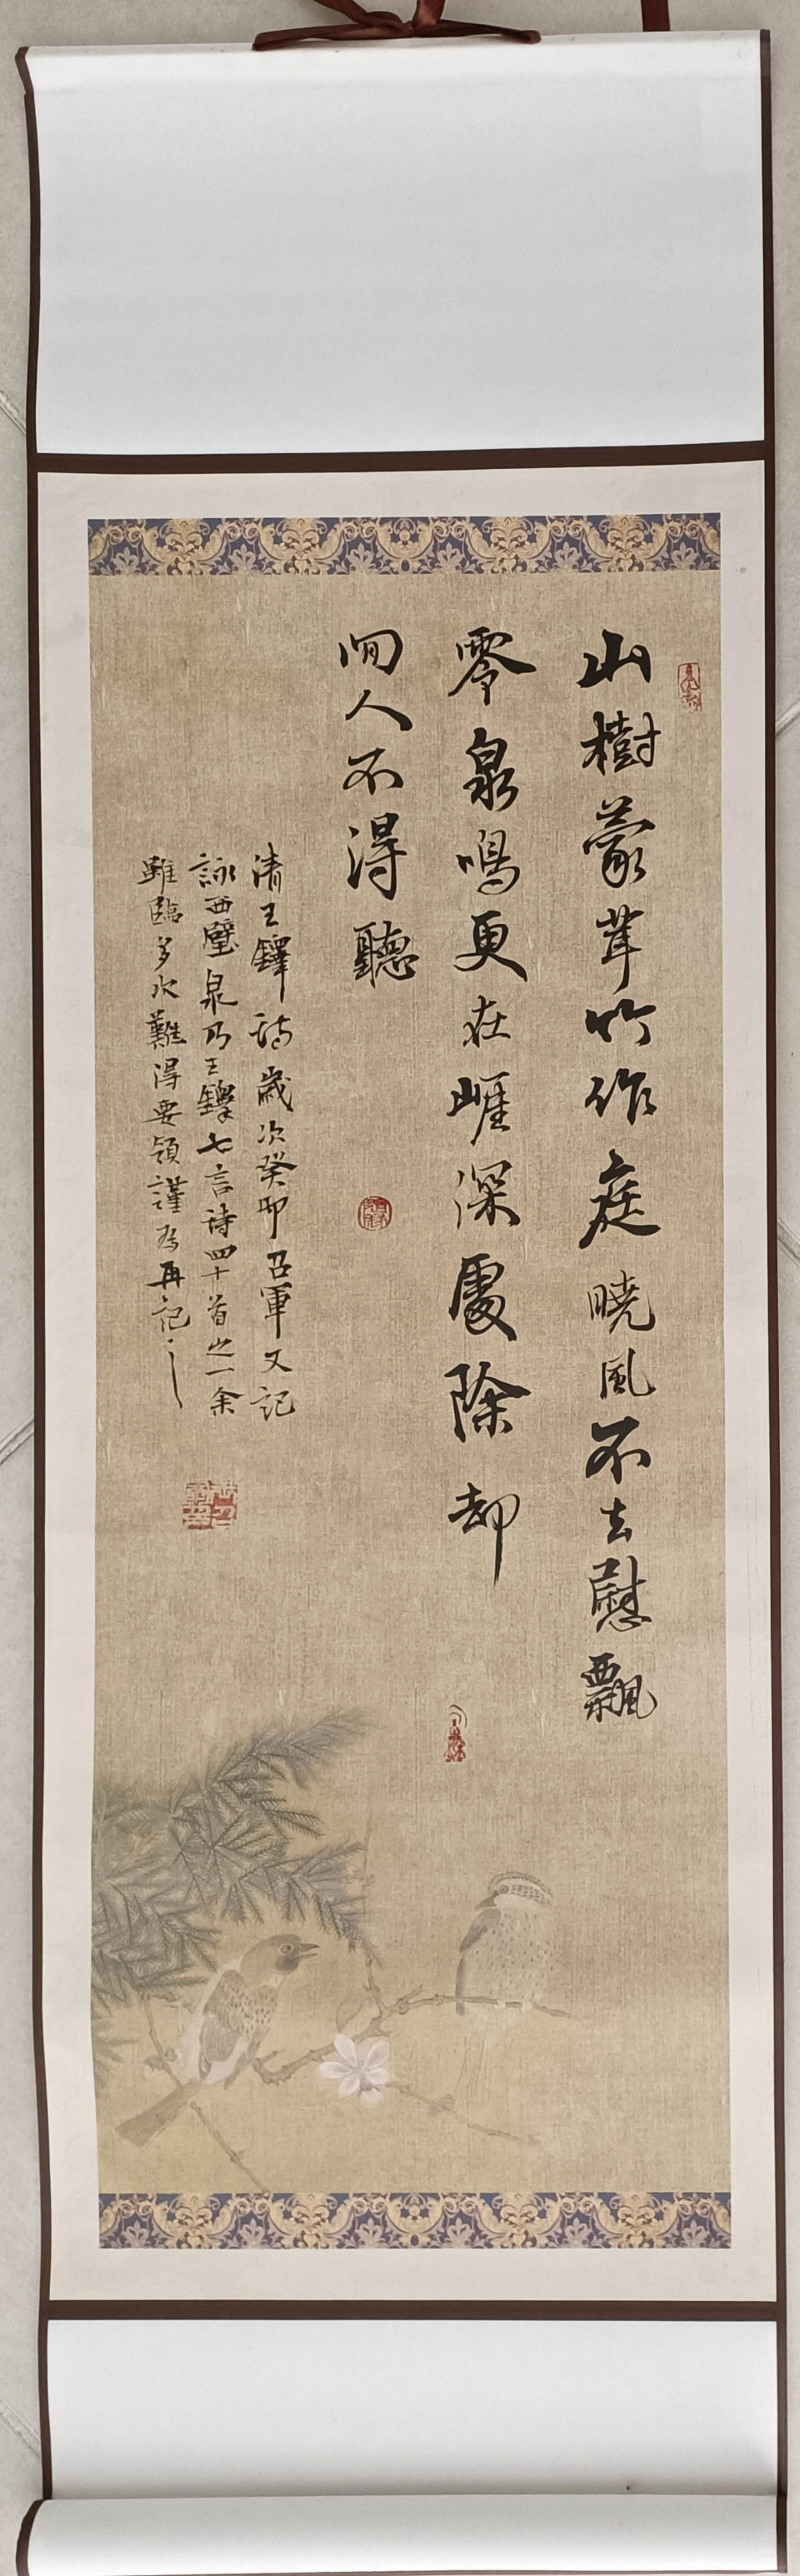 山樹蒙茸竹作庭曉風不去慰飄
零泉鳴更在崕深處除却
間人不得聽
清王鐸詩歲次癸卯召軍又記
詠西壁泉乃王鐸七言詩四十首之一余
雖臨多次難得要領謹為再記之